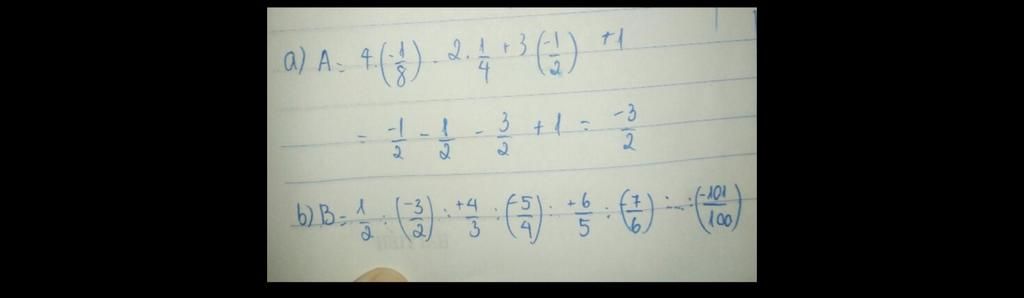 a) A = 4.(-1/8) - 2. 1/4 + 3 (-1/2) + 1
= -1/2 - 1/2 - 3/2 + 1 = -3/2
b) B = 1/2 : (-3/2) : +4/3 : (-5/4) : +6/5 : (-7/6) : ... : (-101/100)